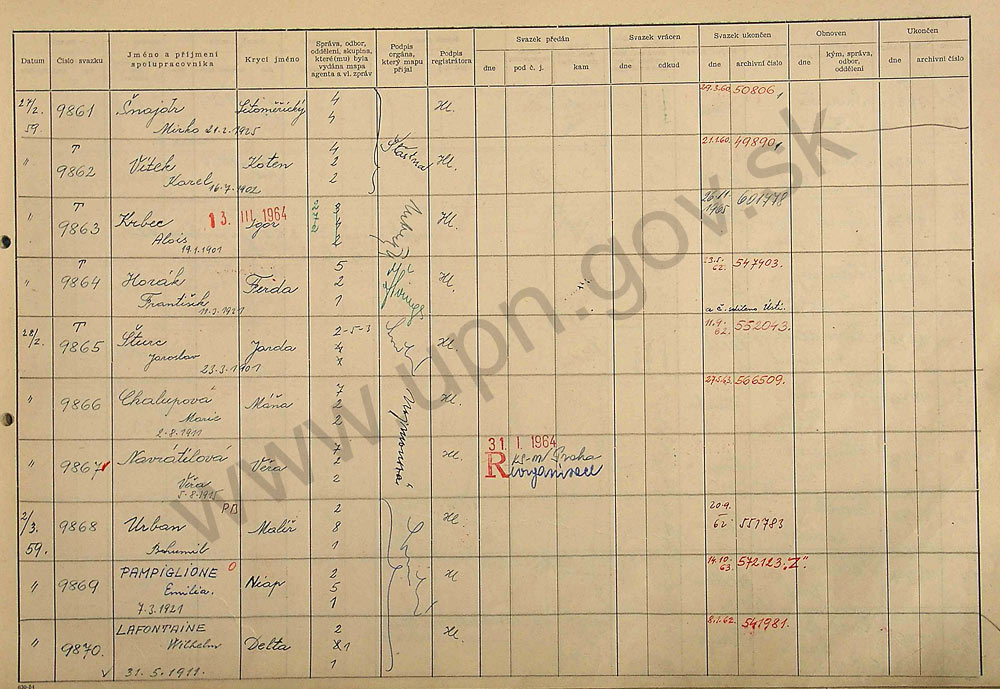 Datum
Číslo svazku
Jméno a příjmení spolupracovníka
Krycí jméno
Správa, odbor, oddělení, skupina, které(mu) byla vydána mapa agenta a vl. zpráv
Podpis orgána, který mapu přijal
Podpis registrátora
Svazek předán
dne pod č. j. kam
Svazek vrácen
dne odkud
Svazek ukončen
dne archivní číslo
Obnoven
dne kým, správa, odbor, oddělení
Ukončen
dne archivní číslo
27/2. 59. 9861 Šnajdr Litoměřický 4 Hl. 29.3.60 50806,
Mirko 21.2.1925 4
Šťastná
" T 9862 Vítek Koten 4 Hl. 21.1.60. 49890,
Karel 16.7.1902 2
2
" T 9863 Krbec 13. III 1964 Igor 8 Hl. 1965 601978
Alois 19.1.1901 2
" T 9864 Horák Ferda 5 Hl. 62. 547903.
František 2
1
28/2. T 9865 Šturc Jarda 2-5-3 Hl. 11.9. 62. 552043.
Jaroslav 4
23.3.1901
" 9866 Chalupová Máňa 7 Hl. 566509.
Marie 2
2-8.1911 2
" 9867 Navrátilová Věra 7 Hl. 31. I. 1964
R Praha
Věra 2
5.8.1915 2
2/3. 59. 9868 Urban PB Malíř 2 Hl. 20.9. 62 551783
8
Bohumil 1
" 9869 PAMPIGLIONE Niap 2 Hl. 14.10. 63. 572123 "Z"
Emilia. 5
7.3.1921 1
" 9870. LAFONTAINE Delta 2 Hl. 8.1.62. 541981.
Wilhelm 81
v 31.5.1911. 1
www.upn.gov.sk